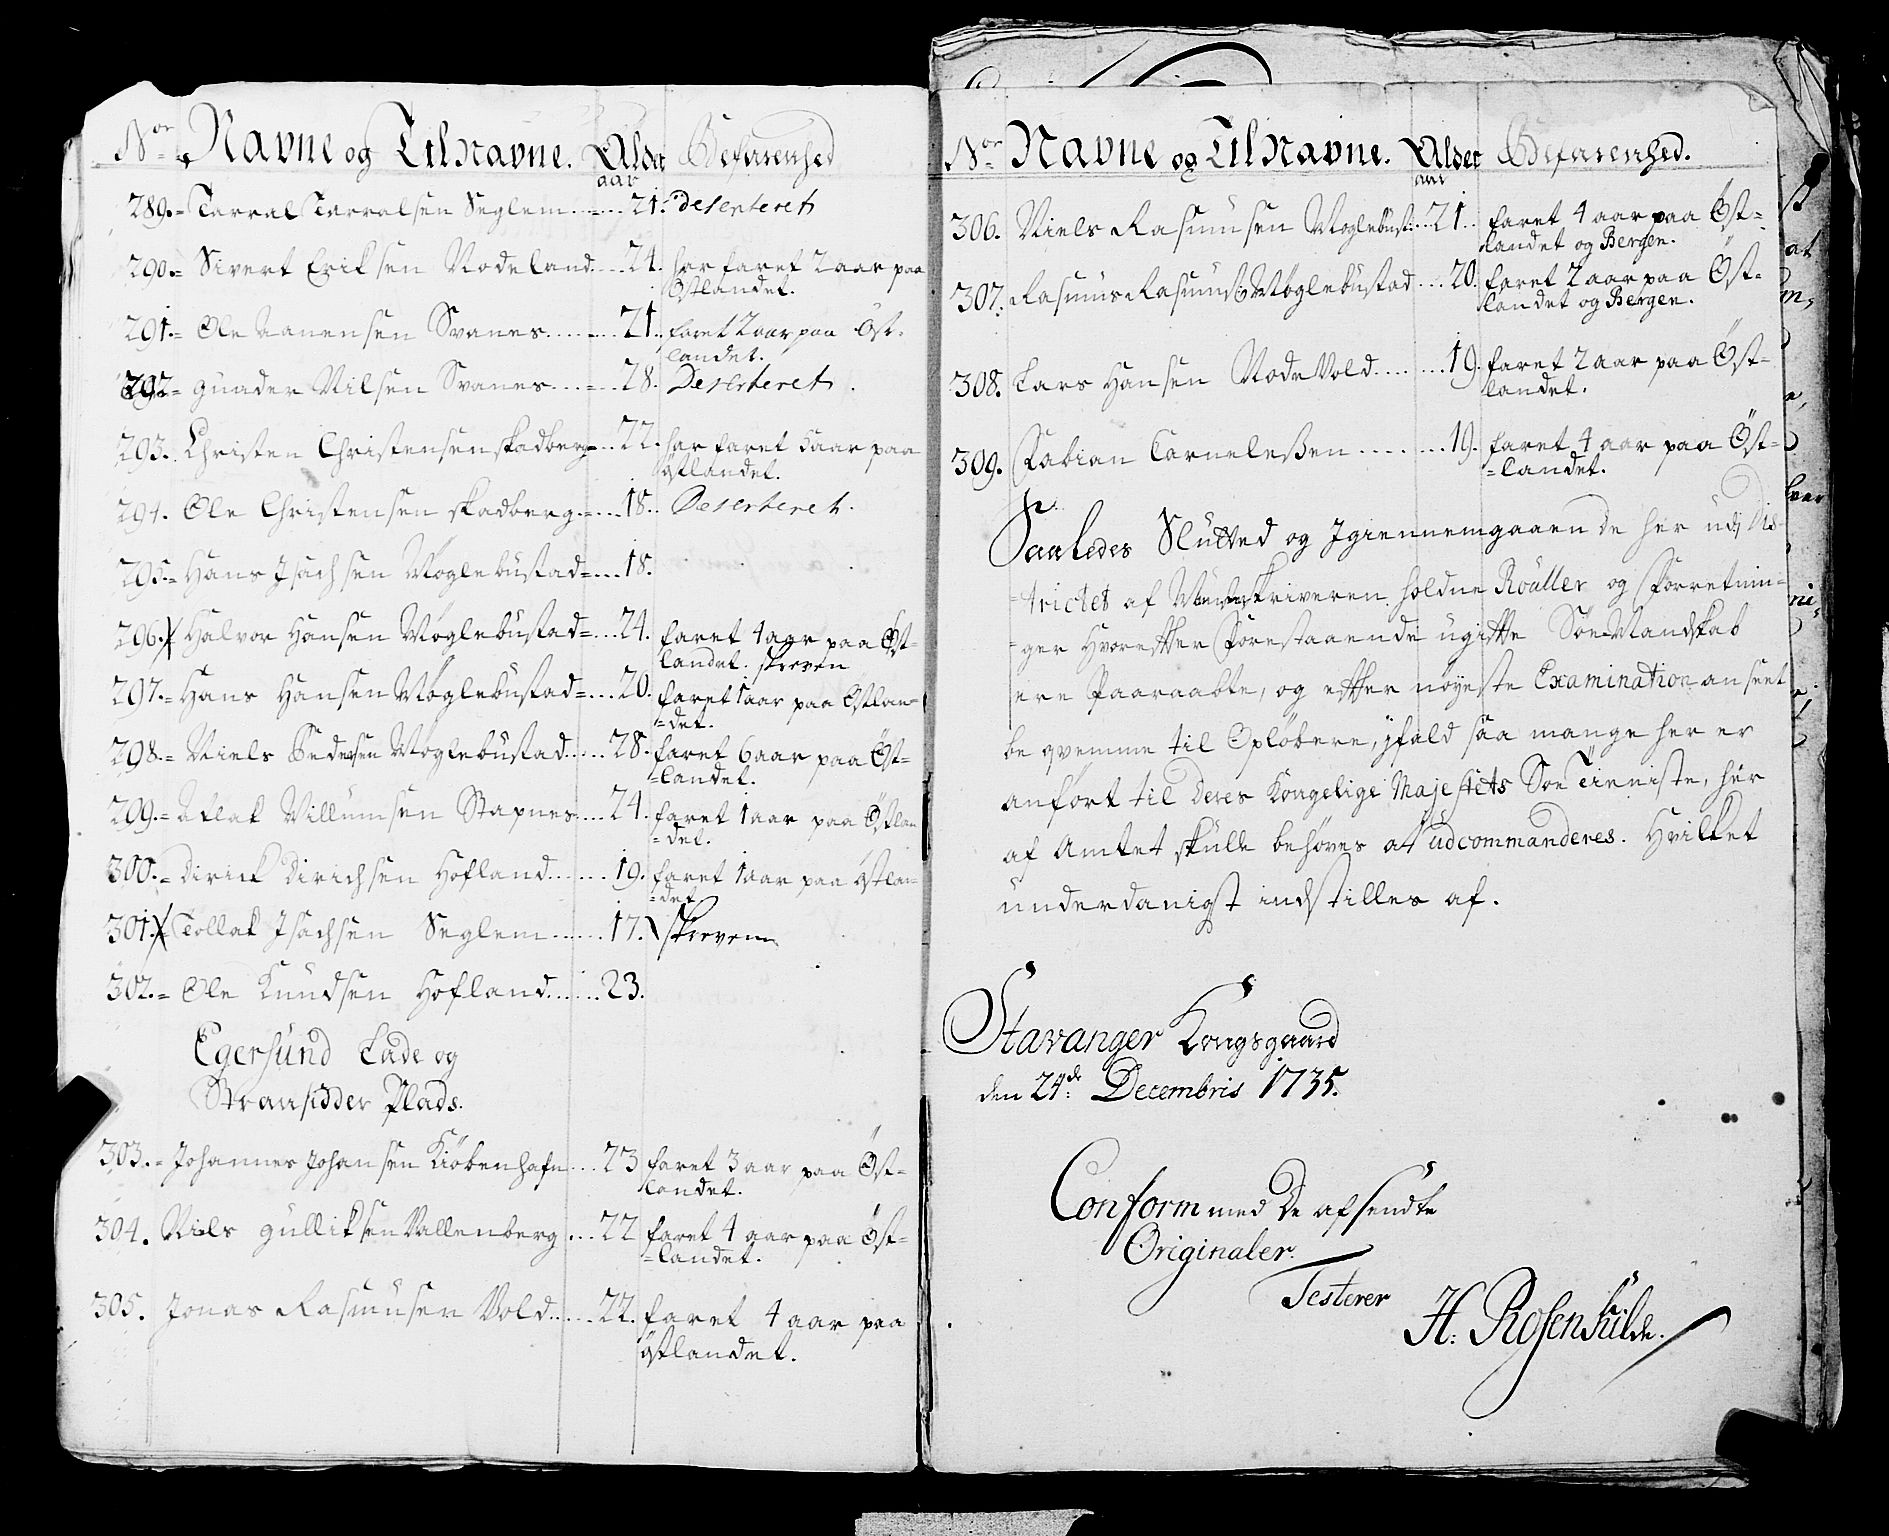 Nor Navne og Tilnavne. Alder Befarenhed
aar
289.= Tarral Tarralsen Seglem.......21. deserteret
290.= Sivert Eriksen Rodeland.....24. har faret 2 aar paa
Östlandet.
291.= Ole Aanensen Svanes.........21. faret 2 aar paa Öst=
landet.
292= gunder Nilsen Svanes.......28. Deserteret.
293. Christen Christensen skadberg...22. har faret 5 aar paa
östlandet.
294. Ole Christensen skadberg.=...18. Deserteret.
295.= Hans Isachsen Møglebustad=....18.
296. Halvor Hansen Møglebustad=....24. faret 4 aar paa Öst=
landet. skreven
297.= Hans Hansen Møglebustad=....20. faret 1 aar paa Östlan=
=det.
298.= Niels Pedersen Møglebustad.....28. faret 6 aar paa Öst=
=landet.
299.= Aslak Villumsen Stapnes....24. faret 1 aar paa Östlan
=det.
300.= Dirick Dirichsen Hofland.......19. faret 1 aar paa östlan=
=det
301. Tollak Isachsen Seglem......17. skreven
302.= Ole Knudsen Hofland.......23.
Egersund Lade og
Stransidder Plads.
303.= Johannes Johansen Kiöbenhafn....23 faret 3 aar paa Öst=
landet.
304. Niels gulliksen Vallenberg....22 faret 4 aar paa Öst=
=landet.
305. Jonas Rasmusen Vold......22. faret 4 aar paa
östlandet.
Nor Navne og Tilnavne. Alder Befarenhed.
aar
306. Niels Rasmusen Moglebust....21.. faret 4 aar paa Öst=
landet og Bergen.
307. Rasmus Rasmus: Møglebustad ...20. faret 2 aar paa Öst=
landet og Bergen.
308. Lars Hansen Rodevold.......19. faret 2 aar paa Öst=
landet.
309. Fabian Cornelessen.........19. faret 4 aar paa Öst=
=landet.
Saaledes Slutted og Igiennemgaaende her udj Dis
=trictet af skriveren holdne Röuller og Forretnin=
=ger Hvorefter Forestaaende ugifte Söe Mandskab
ere Paaraabte, og efter nöyeste Examination anseet
beqvemme til Opløbere, jfald saa mange her er
anført til Deres Kongelige Majestets Söe Tieniste, her
af Amtet skulle behøves at udcommanderes. Hvilket
underdanigst indstilles af.
Stavanger Kongsgaard
den 24de: Decembris 1735.
Conform med De afsendte
Originaler.
Testerer
H: Rosenkilde.